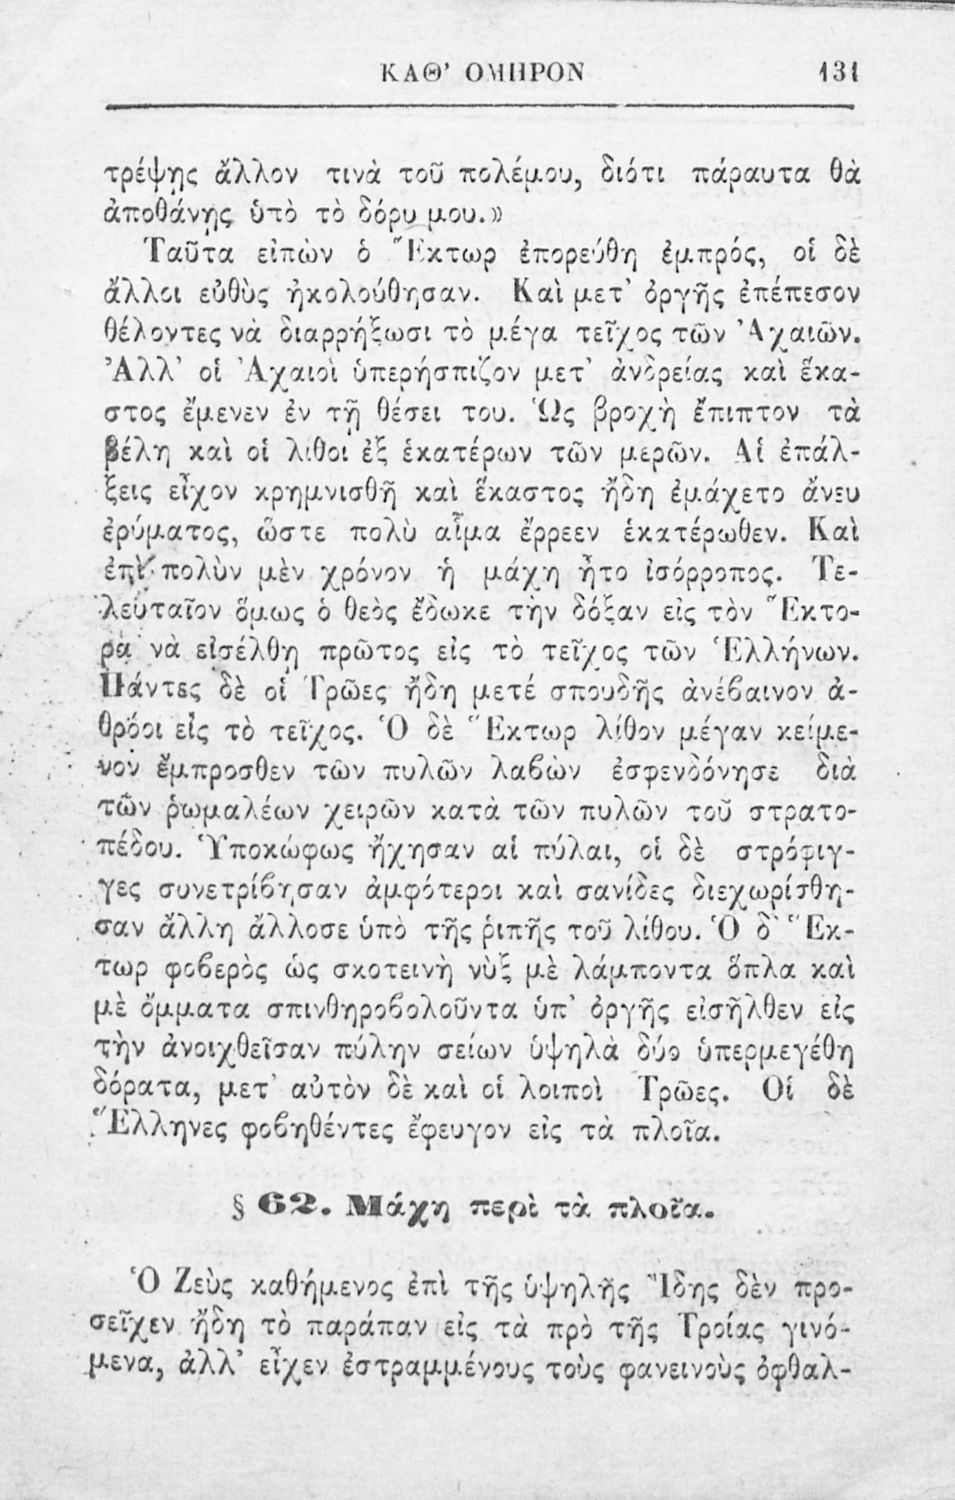 ΚΑΘ' ΟΜΗΡΟΝ 131
τρέψῃς ἄλλον τινὰ τοῦ πολέμου, διότι πάραυτα θὰ
ἀποθάνῃς ὑπὸ τὸ δόρυ μου.»
Ταῦτα εἰπὼν ὁ Ἕκτωρ ἐπορεύθη ἐμπρός, οἱ δὲ
ἄλλοι εὐθὺς ἠκολούθησαν. Καὶ μετ' ὀργῆς ἐπέπεσον
θέλοντες νὰ διαρρήξωσι τὸ μέγα τεῖχος τῶν Ἀχαιῶν.
Ἀλλ' οἱ Ἀχαιοὶ ὑπερήσπιζον μετ' ἀνδρείας καὶ ἕκα-
στος ἔμενεν ἐν τῇ θέσει του. Ὡς βροχὴ ἔπιπτον τὰ
βέλη καὶ οἱ λίθοι ἐξ ἑκατέρων τῶν μερῶν. Αἱ ἐπάλ-
ξεις εἶχον κρημνισθῆ καὶ ἕκαστος ἤδη ἐμάχετο ἄνευ
ἐρύματος, ὥστε πολὺ αἷμα ἔρρεεν ἑκατέρωθεν. Καὶ
ἐπὶ πολὺν μὲν χρόνον ἡ μάχη ἦτο ἰσόρροπος. Τε-
λευταῖον ὅμως ὁ θεὸς ἔδωκε τὴν δόξαν εἰς τὸν Ἕκτο-
ρα νὰ εἰσέλθῃ πρῶτος εἰς τὸ τεῖχος τῶν Ἑλλήνων.
Πάντες δὲ οἱ Τρῶες ἤδη μετέ σπουδῆς ἀνέβαινον ἀ-
θρόοι εἰς τὸ τεῖχος. Ὁ δὲ Ἕκτωρ λίθον μέγαν κείμε-
νον ἔμπροσθεν τῶν πυλῶν λαβὼν ἐσφενδόνησε διὰ
τῶν ῥωμαλέων χειρῶν κατὰ τῶν πυλῶν τοῦ στρατο-
πέδου. Ὑποκώφως ἤχησαν αἱ πύλαι, οἱ δὲ στρόφιγ-
γες συνετρίβησαν ἀμφότεροι καὶ σανίδες διεχωρίσθη-
σαν ἄλλη ἄλλοσε ὑπὸ τῆς ῥιπῆς τοῦ λίθου. Ὁ δ' Ἕκ-
τωρ φοβερὸς ὡς σκοτεινὴ νὺξ μὲ λάμποντα ὅπλα καὶ
μὲ ὄμματα σπινθηροβολοῦντα ὑπ' ὀργῆς εἰσῆλθεν εἰς
τὴν ἀνοιχθεῖσαν πύλην σείων ὑψηλὰ δύο ὑπερμεγέθη
δόρατα, μετ' αὐτὸν δὲ καὶ οἱ λοιποὶ Τρῶες. Οἱ δὲ
Ἕλληνες φοβηθέντες ἔφευγον εἰς τὰ πλοῖα.
§ 62. Μάχη περὶ τὰ πλοῖα.
Ὁ Ζεὺς καθήμενος ἐπὶ τῆς ὑψηλῆς Ἴδης δὲν προ-
σεῖχεν ἤδη τὸ παράπαν εἰς τὰ πρὸ τῆς Τροίας γινό-
μενα, ἀλλ' εἶχεν ἐστραμμένους τοὺς φανεινοὺς ὀφθαλ-